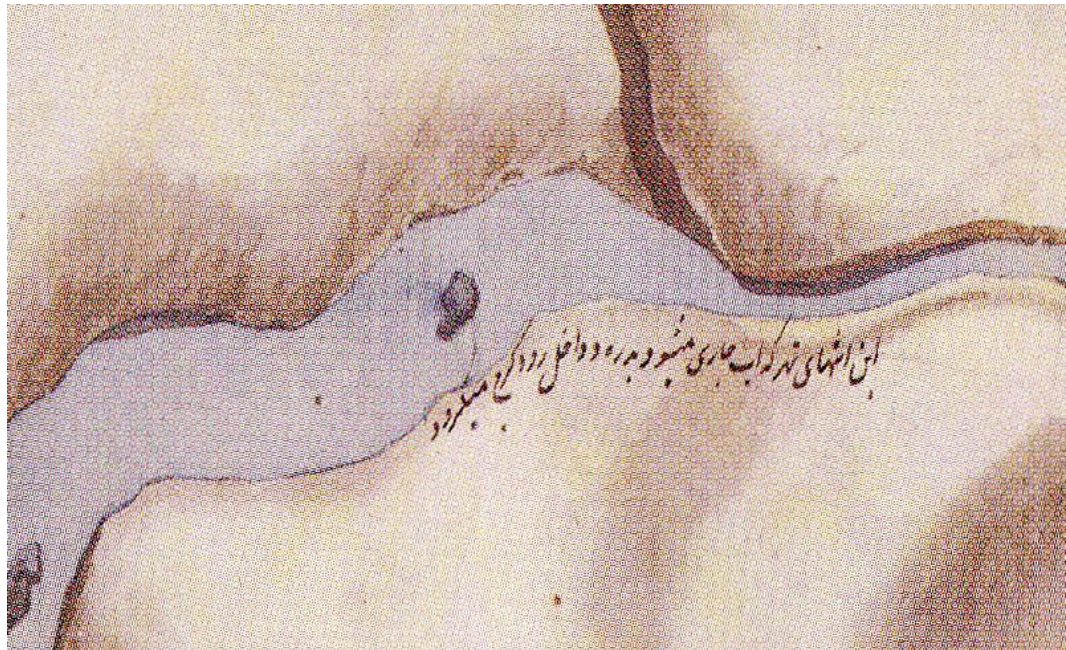 این انتهای نهر که آب جاری میشود بدره و داخل رود کرج میگردد